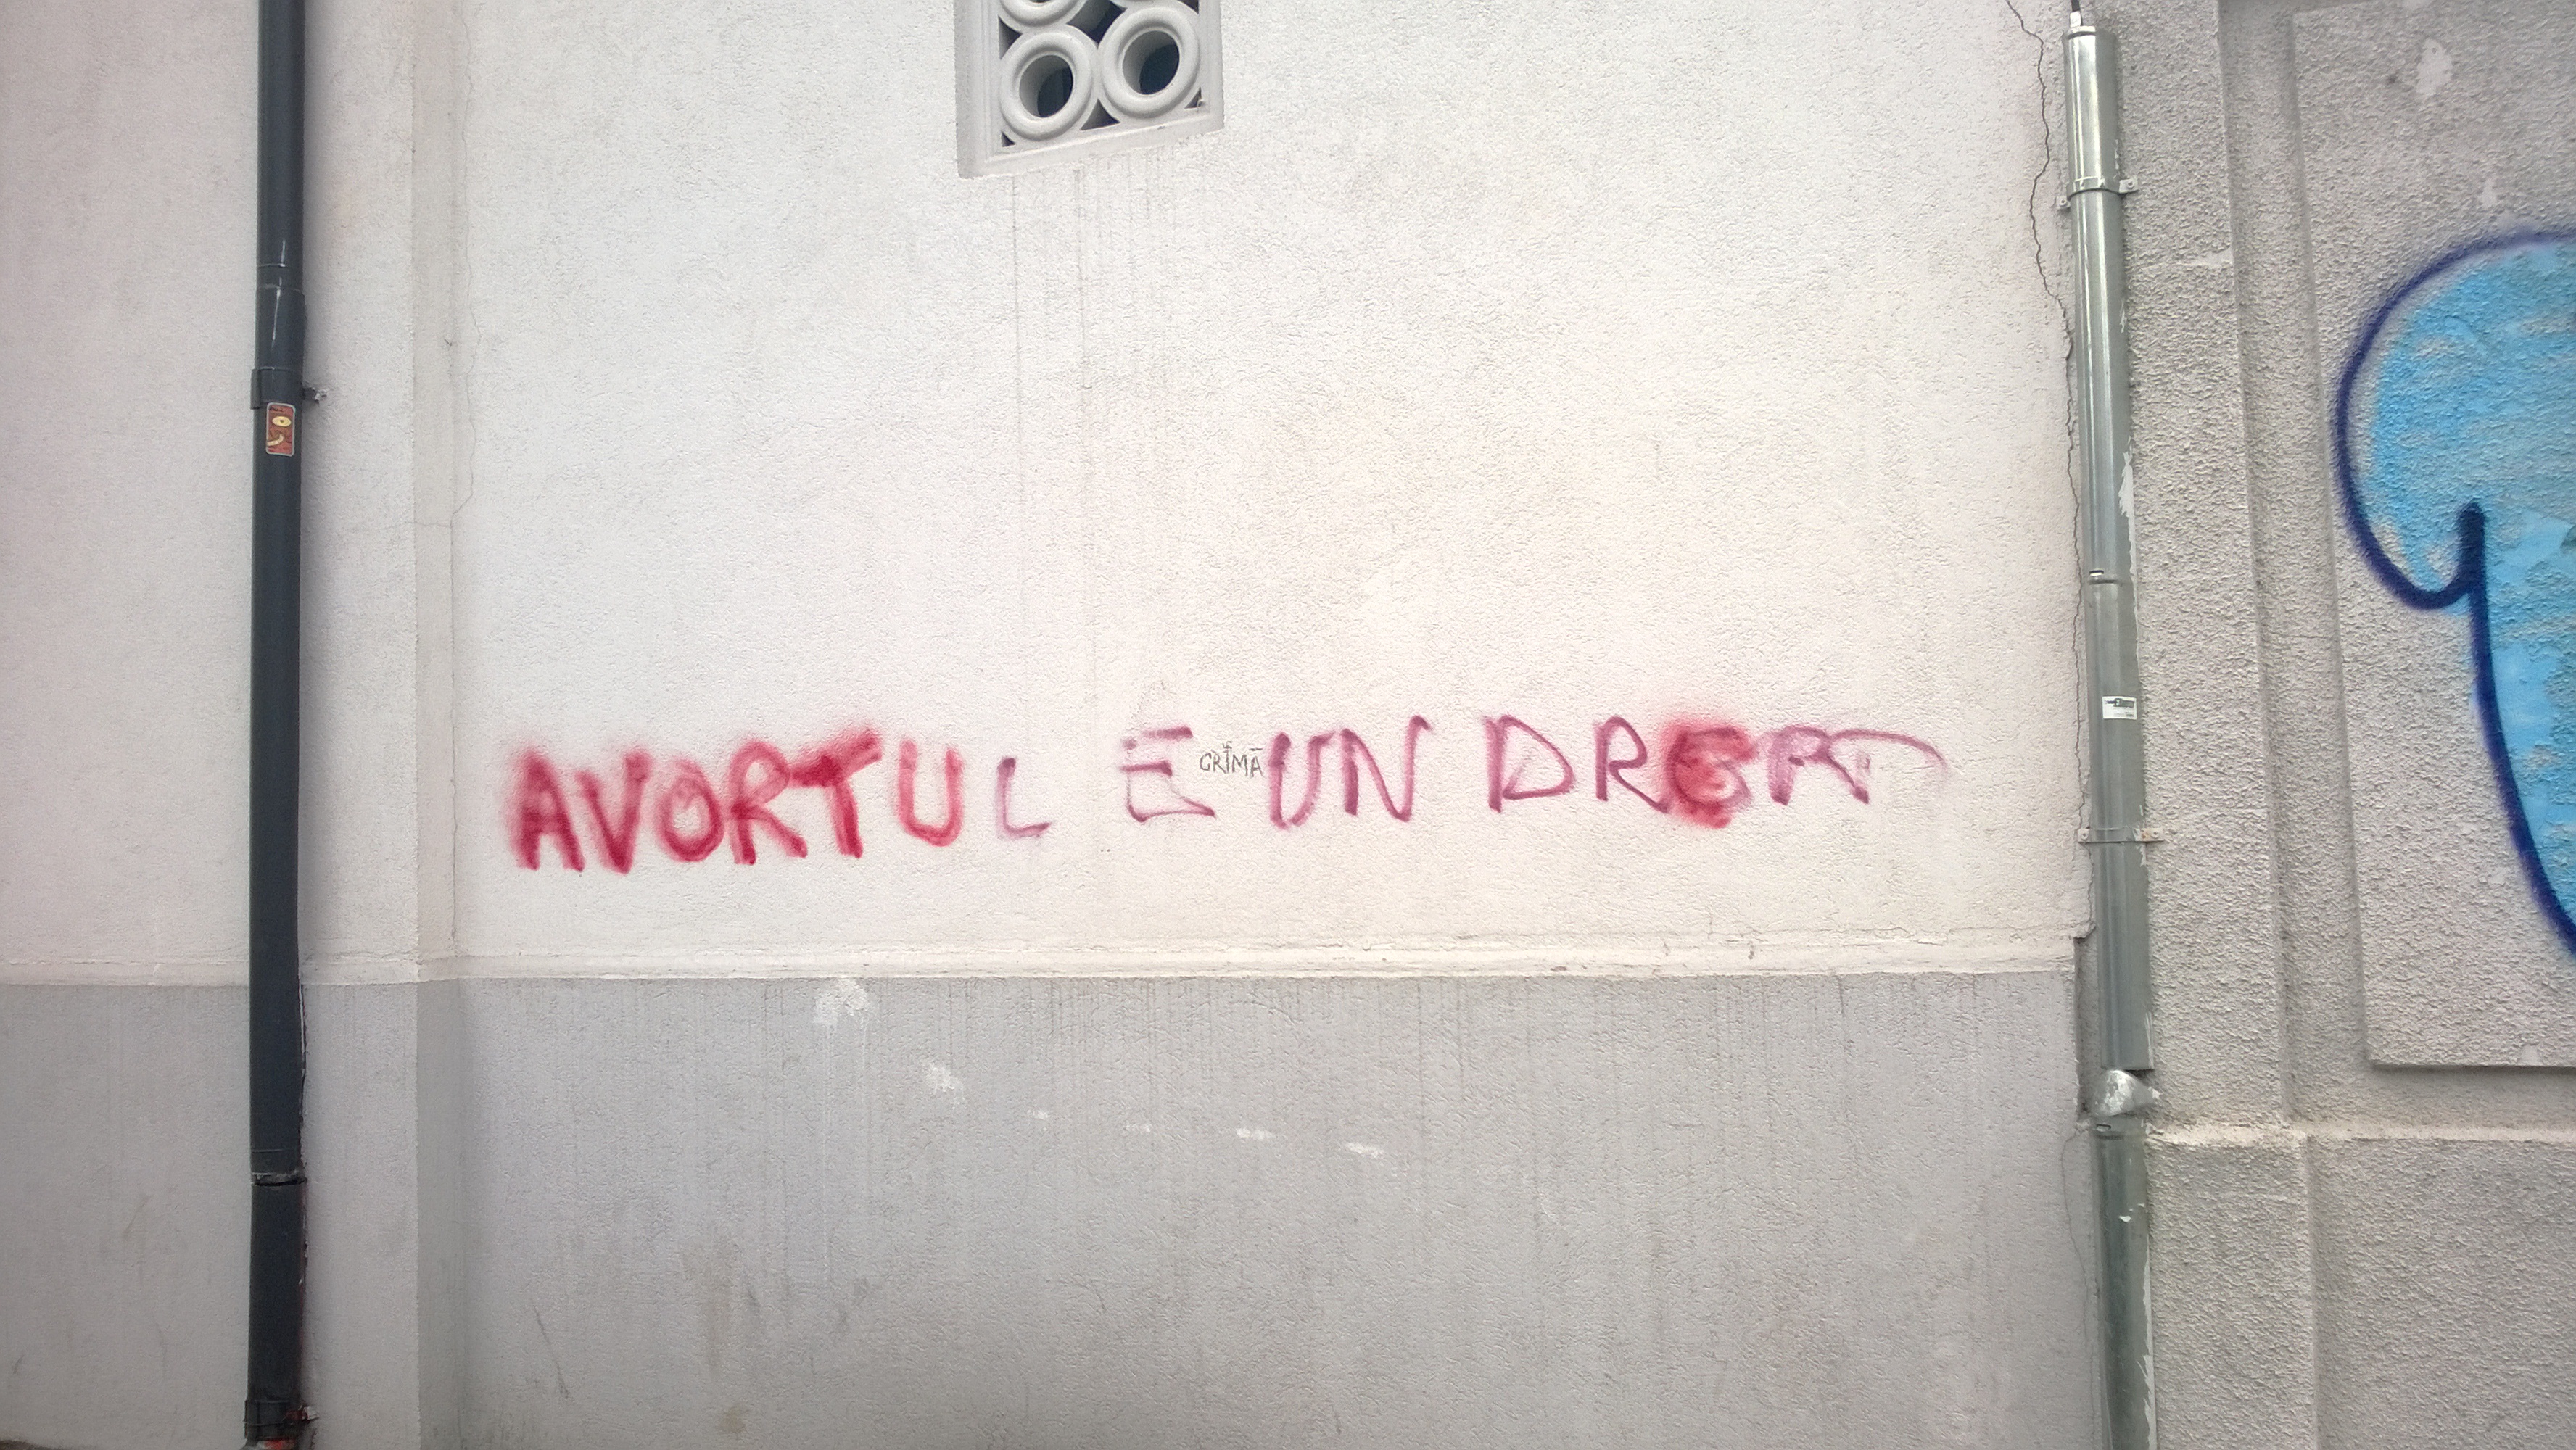 AVORTUL E CRIMĂ UN DREPT